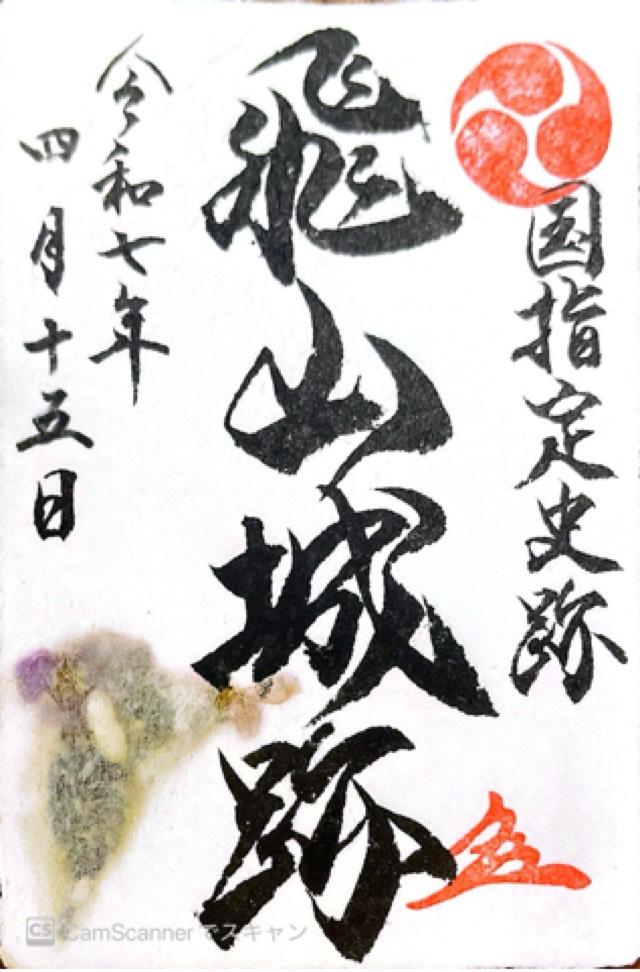 国指定史跡
飛山城跡
令和七年
四月十五日
CS CamScanner でスキャン